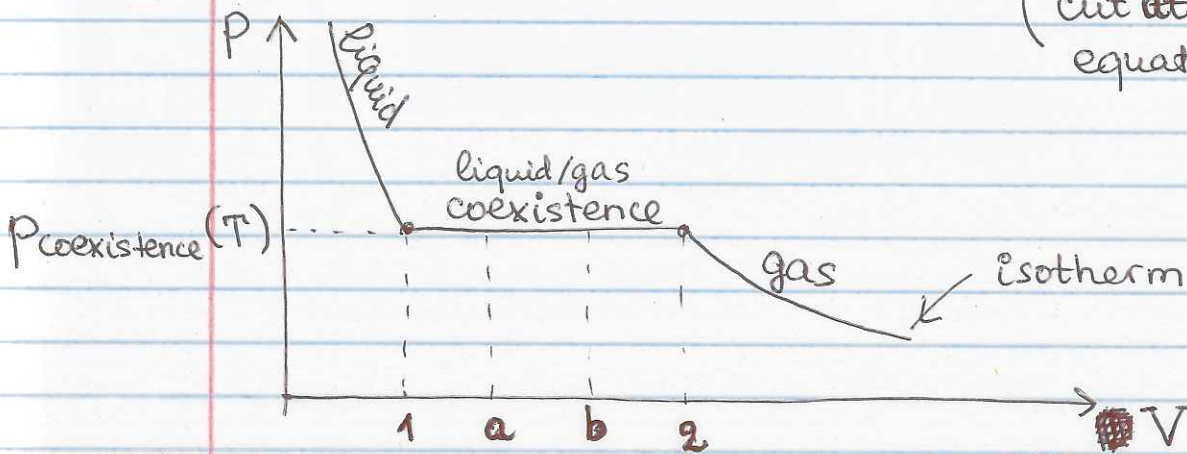 cut
equat
P
liquid
liquid/gas
coexistence
Pcoexistence(T)
gas
isotherm
1 a b 2
V